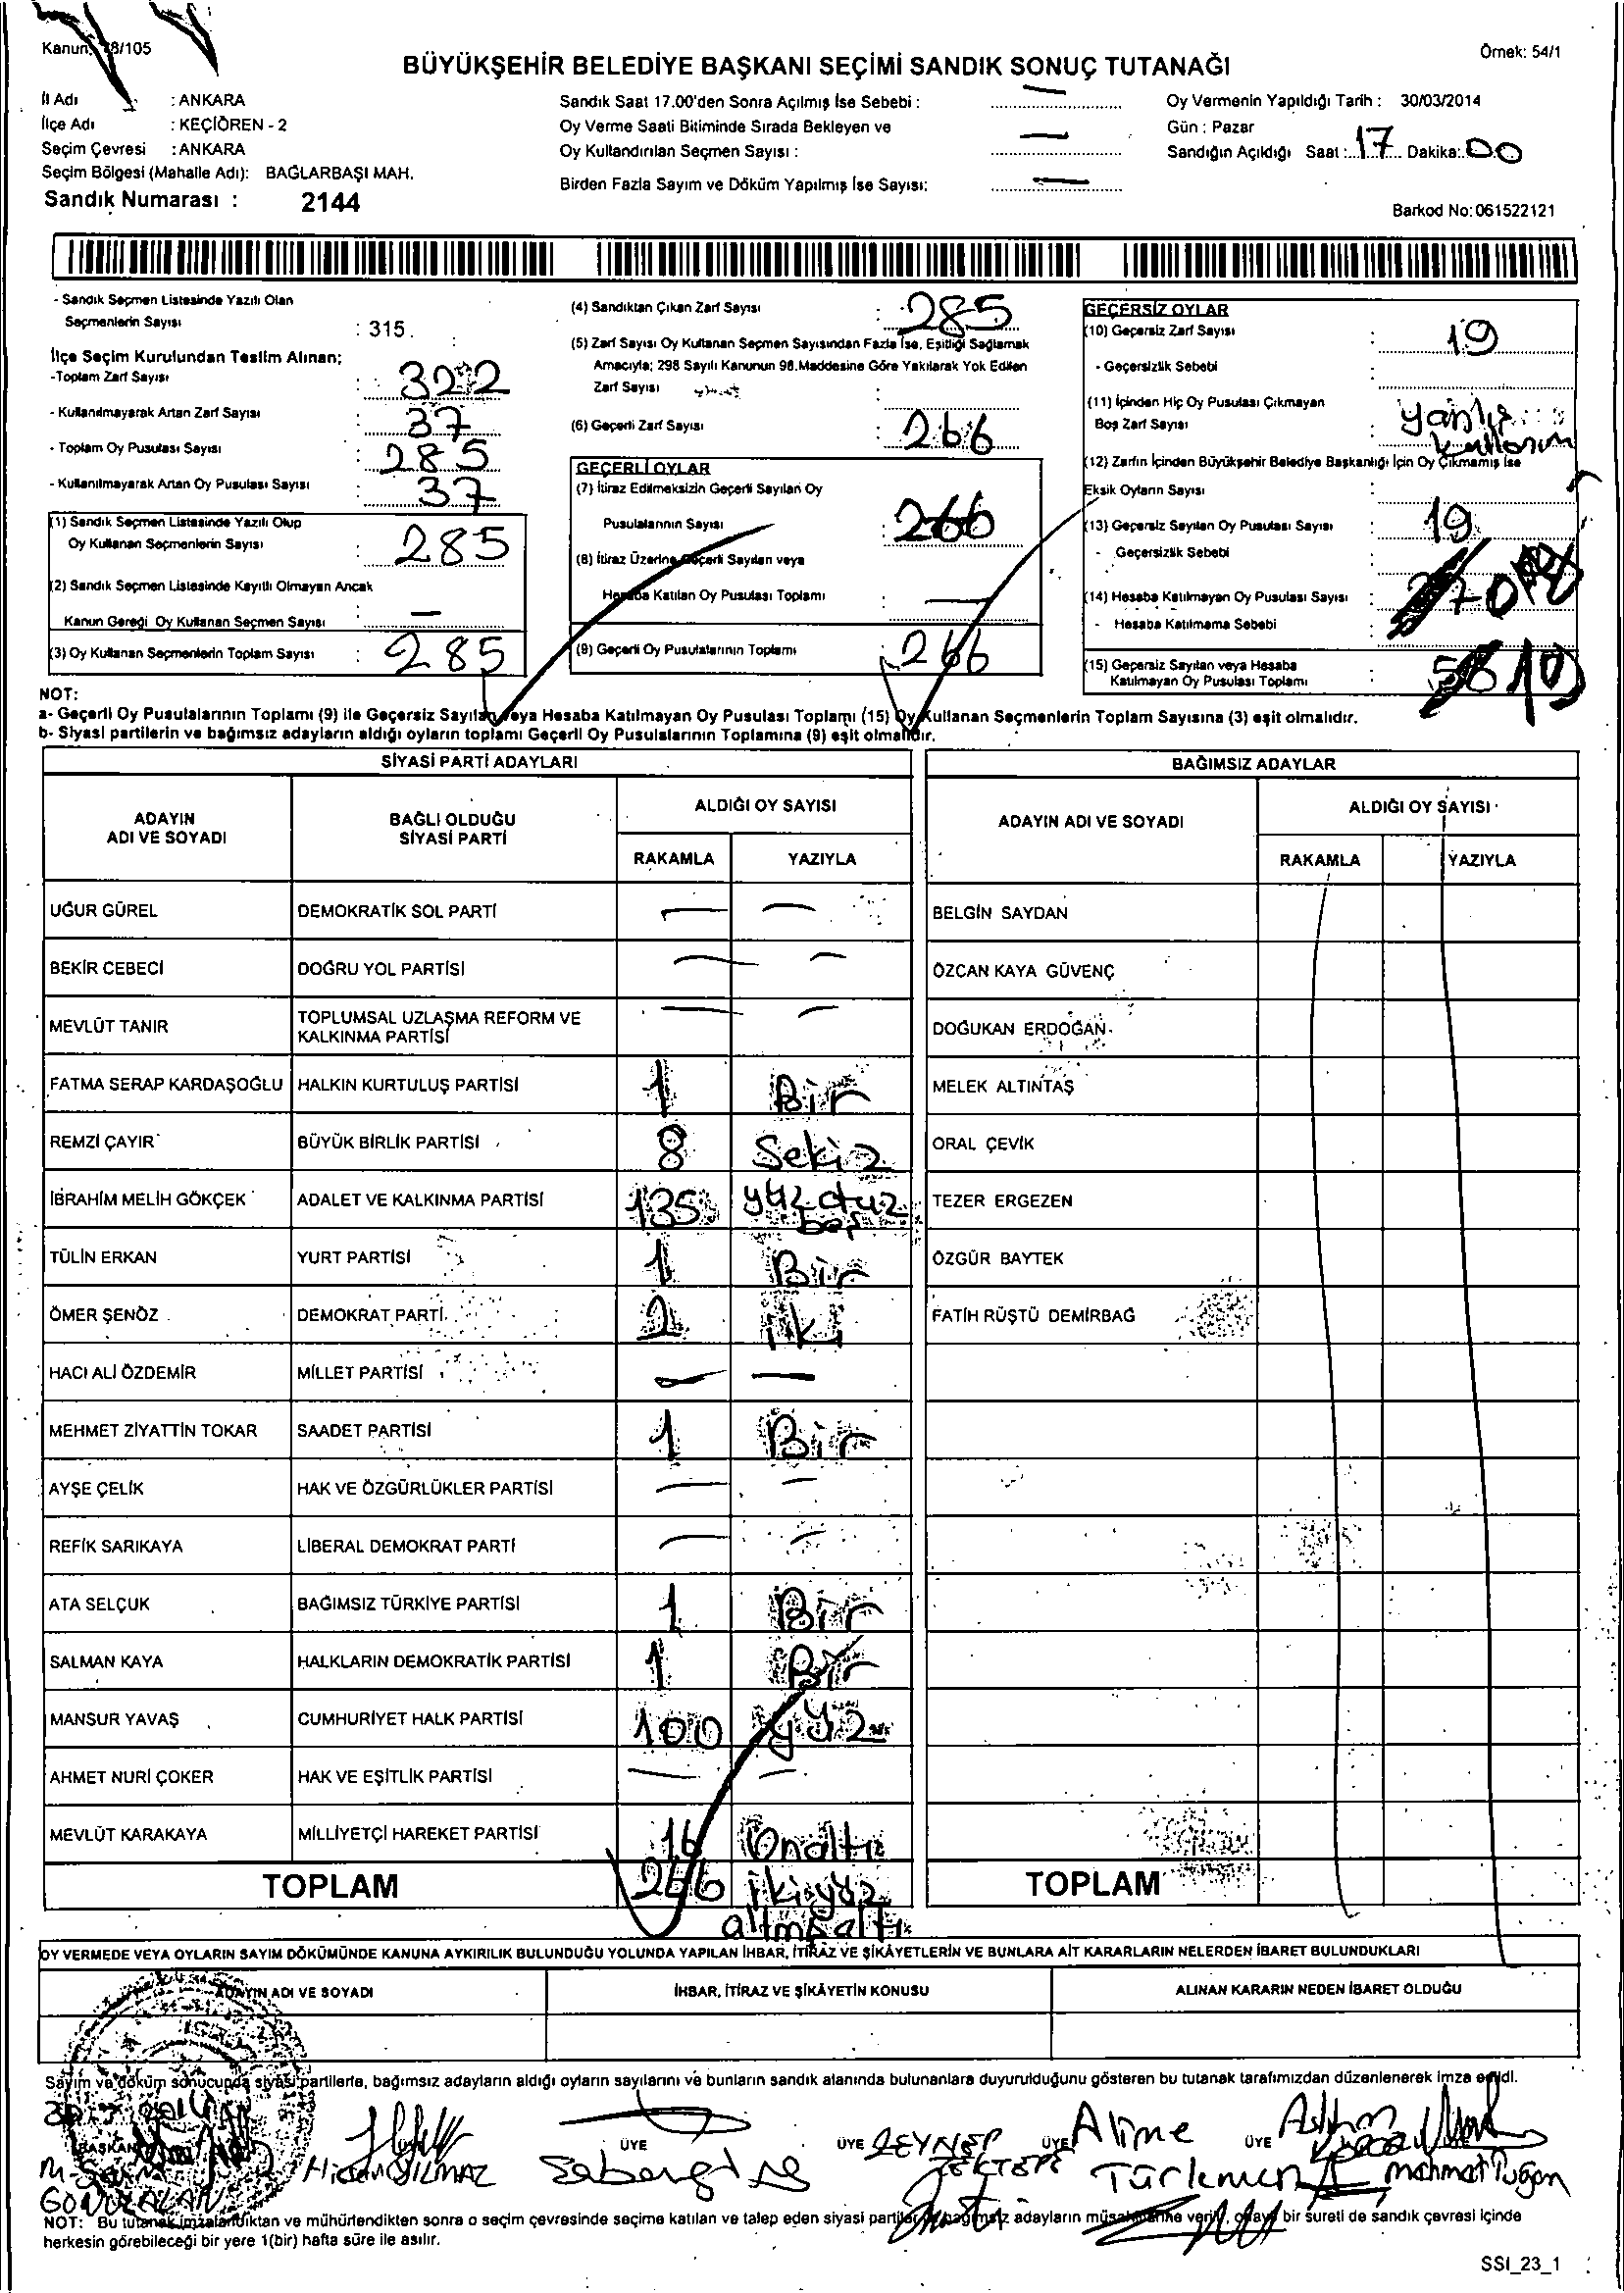 Örnek: 54/1
BÜYÜKŞEHİR BELEDİYE BAŞKANI SEÇİMİ SANDIK SONUÇ TUTANAĞI
İl Adı : ANKARA
İlçe Adı : KEÇİÖREN - 2
Seçim Çevresi : ANKARA
Seçim Bölgesi (Mahalle Adı): BAĞLARBAŞI MAH.
Sandık Numarası : 2144
Sandık Saat 17.00'den Sonra Açılmış İse Sebebi : —
Oy Verme Saati Bitiminde Sırada Bekleyen ve
Oy Kullandırılan Seçmen Sayısı : —
Birden Fazla Sayım ve Döküm Yapılmış İse Sayısı: —
Oy Vermenin Yapıldığı Tarih : 30/03/2014
Gün : Pazar
Sandığın Açıldığı Saat : 17 Dakika: 00
Barkod No: 061522121
- Sandık Seçmen Listesinde Yazılı Olan
Seçmenlerin Sayısı : 315
İlçe Seçim Kurulundan Teslim Alınan;
-Toplam Zarf Sayısı : 322
- Kullanılmayarak Artan Zarf Sayısı : 37
- Toplam Oy Pusulası Sayısı : 285
- Kullanılmayarak Artan Oy Pusulası Sayısı : 37
(1) Sandık Seçmen Listesinde Yazılı Olup
Oy Kullanan Seçmenlerin Sayısı : 285
(2) Sandık Seçmen Listesinde Kayıtlı Olmayan Ancak
Kanun Gereği Oy Kullanan Seçmen Sayısı : —
(3) Oy Kullanan Seçmenlerin Toplam Sayısı : 285
(4) Sandıktan Çıkan Zarf Sayısı : 285
(5) Zarf Sayısı Oy Kullanan Seçmen Sayısından Fazla İse, Eşitliği Sağlamak
Amacıyla; 298 Sayılı Kanunun 98.Maddesine Göre Yakılarak Yok Edilen
Zarf Sayısı :
(6) Geçerli Zarf Sayısı : 266
GEÇERLİ OYLAR
(7) İtiraz Edilmeksizin Geçerli Sayılan Oy
Pusulalarının Sayısı : 266
(8) İtiraz Üzerine Geçerli Sayılan veya
Hesaba Katılan Oy Pusulası Toplamı : —
(9) Geçerli Oy Pusulalarının Toplamı : 266
GEÇERSİZ OYLAR
(10) Geçersiz Zarf Sayısı : 19
- Geçersizlik Sebebi :
(11) İçinden Hiç Oy Pusulası Çıkmayan
Boş Zarf Sayısı : yanlış kullanım
(12) Zarfın İçinden Büyükşehir Belediye Başkanlığı İçin Oy Çıkmamış İse
Eksik Oyların Sayısı :
(13) Geçersiz Sayılan Oy Pusulası Sayısı : 19
- Geçersizlik Sebebi :
(14) Hesaba Katılmayan Oy Pusulası Sayısı :
- Hesaba Katılmama Sebebi :
(15) Geçersiz Sayılan veya Hesaba
Katılmayan Oy Pusulası Toplamı :
NOT:
a- Geçerli Oy Pusulalarının Toplamı (9) ile Geçersiz Sayılan veya Hesaba Katılmayan Oy Pusulası Toplamı (15) Oy Kullanan Seçmenlerin Toplam Sayısına (3) eşit olmalıdır.
b- Siyasi partilerin ve bağımsız adayların aldığı oyların toplamı Geçerli Oy Pusulalarının Toplamına (9) eşit olmalıdır.
SİYASİ PARTİ ADAYLARI
ADAYIN ADI VE SOYADI BAĞLI OLDUĞU SİYASİ PARTİ ALDIĞI OY SAYISI
RAKAMLA YAZIYLA
UĞUR GÜREL DEMOKRATİK SOL PARTİ — —
BEKİR CEBECİ DOĞRU YOL PARTİSİ — —
MEVLÜT TANIR TOPLUMSAL UZLAŞMA REFORM VE KALKINMA PARTİSİ — —
FATMA SERAP KARDAŞOĞLU HALKIN KURTULUŞ PARTİSİ 1 Bir
REMZİ ÇAYIR BÜYÜK BİRLİK PARTİSİ 8 Sekiz
İBRAHİM MELİH GÖKÇEK ADALET VE KALKINMA PARTİSİ 135 yüz otuz beş
TÜLİN ERKAN YURT PARTİSİ 1 Bir
ÖMER ŞENÖZ DEMOKRAT PARTİ 2 iki
HACI ALİ ÖZDEMİR MİLLET PARTİSİ — —
MEHMET ZİYATTİN TOKAR SAADET PARTİSİ 1 Bir
AYŞE ÇELİK HAK VE ÖZGÜRLÜKLER PARTİSİ — —
REFİK SARIKAYA LİBERAL DEMOKRAT PARTİ — —
ATA SELÇUK BAĞIMSIZ TÜRKİYE PARTİSİ 1 Bir
SALMAN KAYA HALKLARIN DEMOKRATİK PARTİSİ 1 Bir
MANSUR YAVAŞ CUMHURİYET HALK PARTİSİ 100 yüz
AHMET NURİ ÇOKER HAK VE EŞİTLİK PARTİSİ — —
MEVLÜT KARAKAYA MİLLİYETÇİ HAREKET PARTİSİ 16 Onaltı
TOPLAM 266 ikiyüz altmışaltı
BAĞIMSIZ ADAYLAR
ADAYIN ADI VE SOYADI ALDIĞI OY SAYISI
RAKAMLA YAZIYLA
BELGİN SAYDAN
ÖZCAN KAYA GÜVENÇ
DOĞUKAN ERDOĞAN
MELEK ALTINTAŞ
ORAL ÇEVİK
TEZER ERGEZEN
ÖZGÜR BAYTEK
FATİH RÜŞTÜ DEMİRBAĞ
TOPLAM
OY VERMEDE VEYA OYLARIN SAYIM DÖKÜMÜNDE KANUNA AYKIRILIK BULUNDUĞU YOLUNDA YAPILAN İHBAR, İTİRAZ VE ŞİKÂYETLERİN VE BUNLARA AİT KARARLARIN NELERDEN İBARET BULUNDUKLARI
ADAYIN ADI VE SOYADI İHBAR, İTİRAZ VE ŞİKÂYETİN KONUSU ALINAN KARARIN NEDEN İBARET OLDUĞU
Sayım ve döküm sonucunda siyasi partilerle, bağımsız adayların aldığı oyların sayılarını ve bunların sandık alanında bulunanlara duyurulduğunu gösteren bu tutanak tarafımızdan düzenlenerek imza edildi.
BAŞKAN ÜYE ÜYE ÜYE ÜYE
YILMAZ ZEYNEP TEKTEPE Alime Türkmen
NOT: Bu tutanak imzalandıktan ve mühürlendikten sonra o seçim çevresinde seçime katılan ve talep eden siyasi partiler ve bağımsız adayların müşahidine verilir, onaylı bir sureti de sandık çevresi içinde
herkesin görebileceği bir yere 1(bir) hafta süre ile asılır.
SSI_23_1